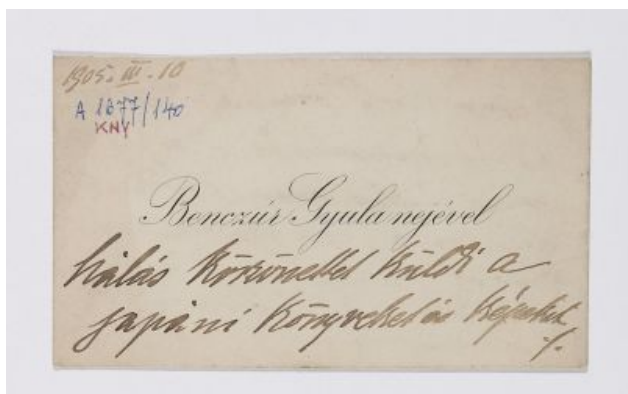 1905. III. 10
A 1877/140
KNY
Benczúr Gyula nejével
hálás köszönettel küldi a
japáni könyveket és képeket
./.